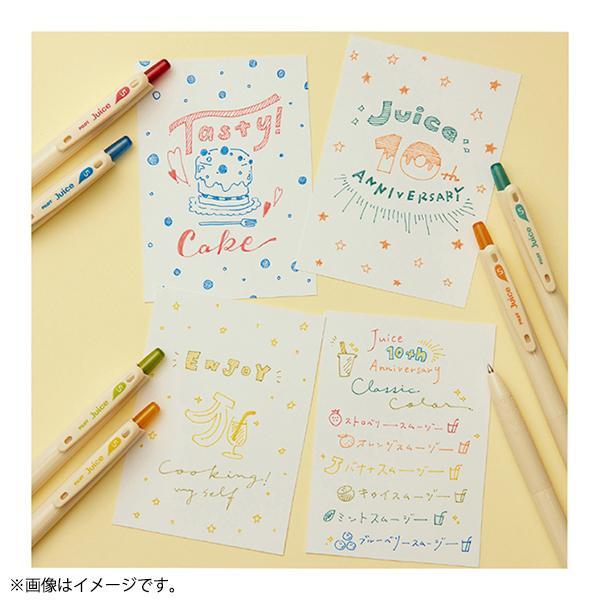 Tasty!
Cake
Juice
10th
ANNIVERSARY
PILOT Juice 05
PILOT Juice 05
PILOT Juice 05
PILOT Juice 05
PILOT Juice 05
PILOT Juice 05
ENJOY
Cooking!
my self
Juice
10th
Anniversary
Classic
Color
ストロベリースムージー
オレンジスムージー
バナナスムージー
キウイスムージー
ミントスムージー
ブルーベリースムージー
※画像はイメージです。